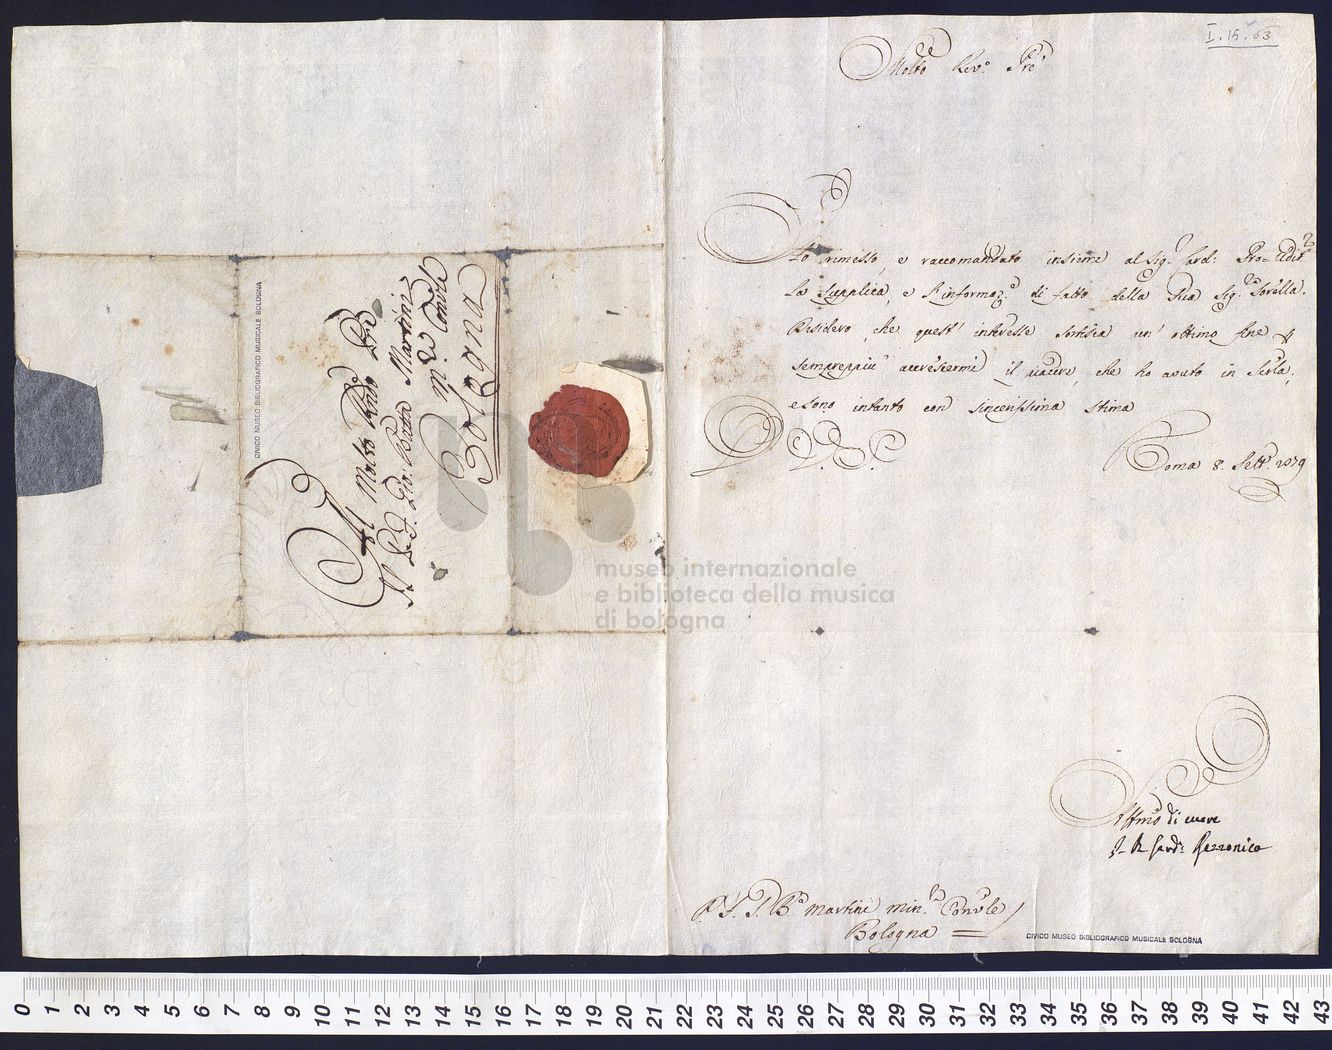 I. 15. 63
Molto Rev.º Pre'
Ho rimesso, e raccomandato insieme al Sig.r Card: Pro-Udit.re
La Supplica, e L'informaz.e di fatto della Sua Sig.ra Sorella.
Desidero, che quest' interesse sortisca un' ottimo fine p
semprepiù accrescermi il piacere, che ho avuto in Serla,
e sono intanto con sincerissima stima
D. V. S.
Roma 8. Sett.
Affmo di cuore
Card: Rezzonico
P. F. G. B.a Martini Min.r Conv.le
Bologna
CIVICO MUSEO BIBLIOGRAFICO MUSICALE BOLOGNA
Al Molto Rndo Pre
Il P. F. Gio: Batta Martini
M.r Conv.le
Bologna
CIVICO MUSEO BIBLIOGRAFICO MUSICALE BOLOGNA
museo internazionale
e biblioteca della musica
di bologna
0 1 2 3 4 5 6 7 8 9 10 11 12 13 14 15 16 17 18 19 20 21 22 23 24 25 26 27 28 29 30 31 32 33 34 35 36 37 38 39 40 41 42 43